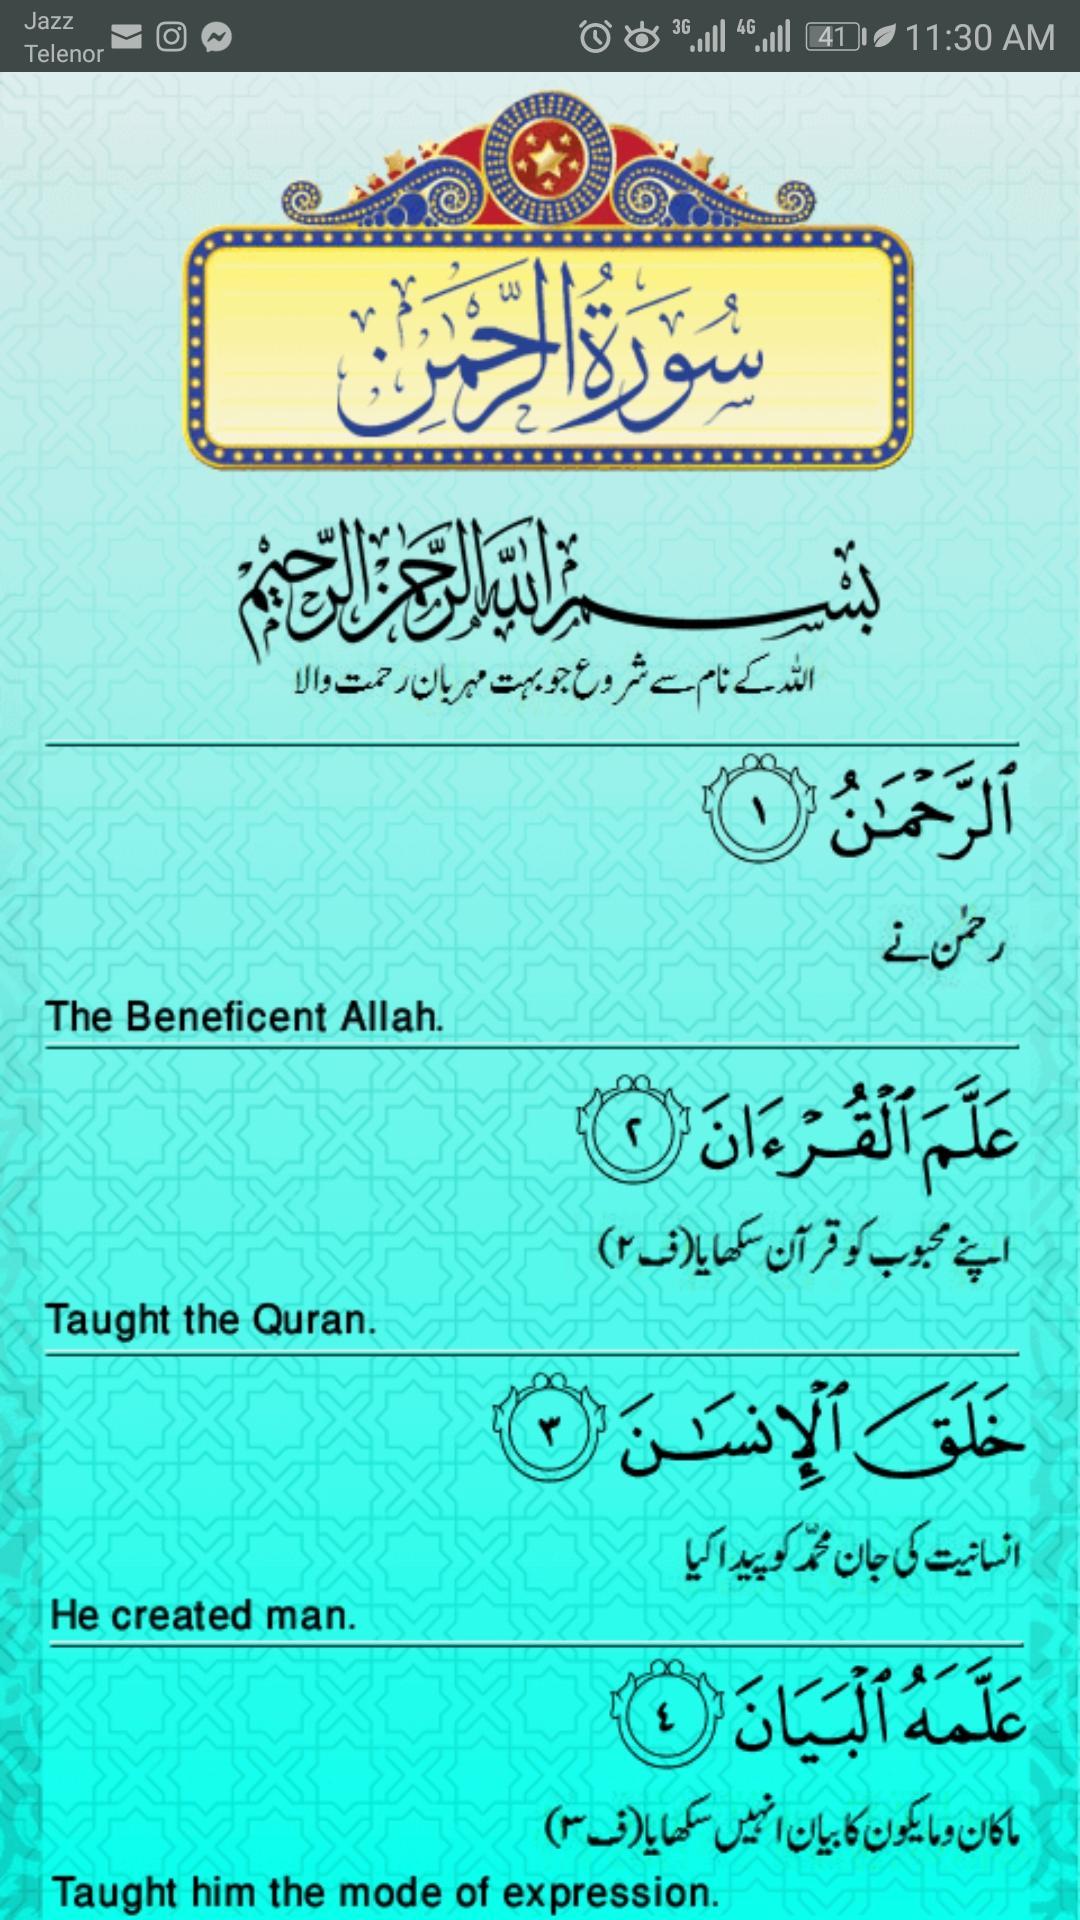 Jazz
Telenor
3G 4G 41 11:30 AM
سُورَةُ الرَّحْمٰنِ
بِسْمِ اللّٰهِ الرَّحْمٰنِ الرَّحِيْمِ
اللہ کے نام سے شروع جو بہت مہربان رحمت والا
ٱلرَّحْمَـٰنُ ١
رحمٰن نے
The Beneficent Allah.
عَلَّمَ ٱلْقُرْءَانَ ٢
اپنے محبوب کو قرآن سکھایا (ف۲)
Taught the Quran.
خَلَقَ ٱلْإِنسَـٰنَ ٣
انسانیت کی جان محمّد کو پیدا کیا
He created man.
عَلَّمَهُ ٱلْبَيَانَ ٤
ماکان وما یکون کا بیان انہیں سکھایا (ف۳)
Taught him the mode of expression.